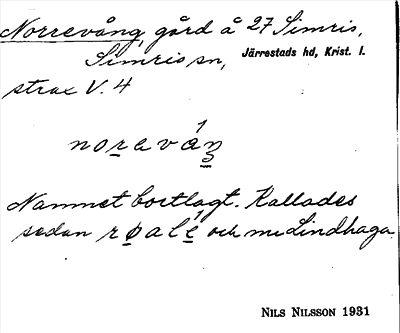 Norrevång, gård å 27 Simris,
Simris sn, Järrestads hd, Krist. l.
strax V. 4
noreváŋ
Namnet bortlagt. Kallades
sedan och nu Lindhaga.
NILS NILSSON 1931